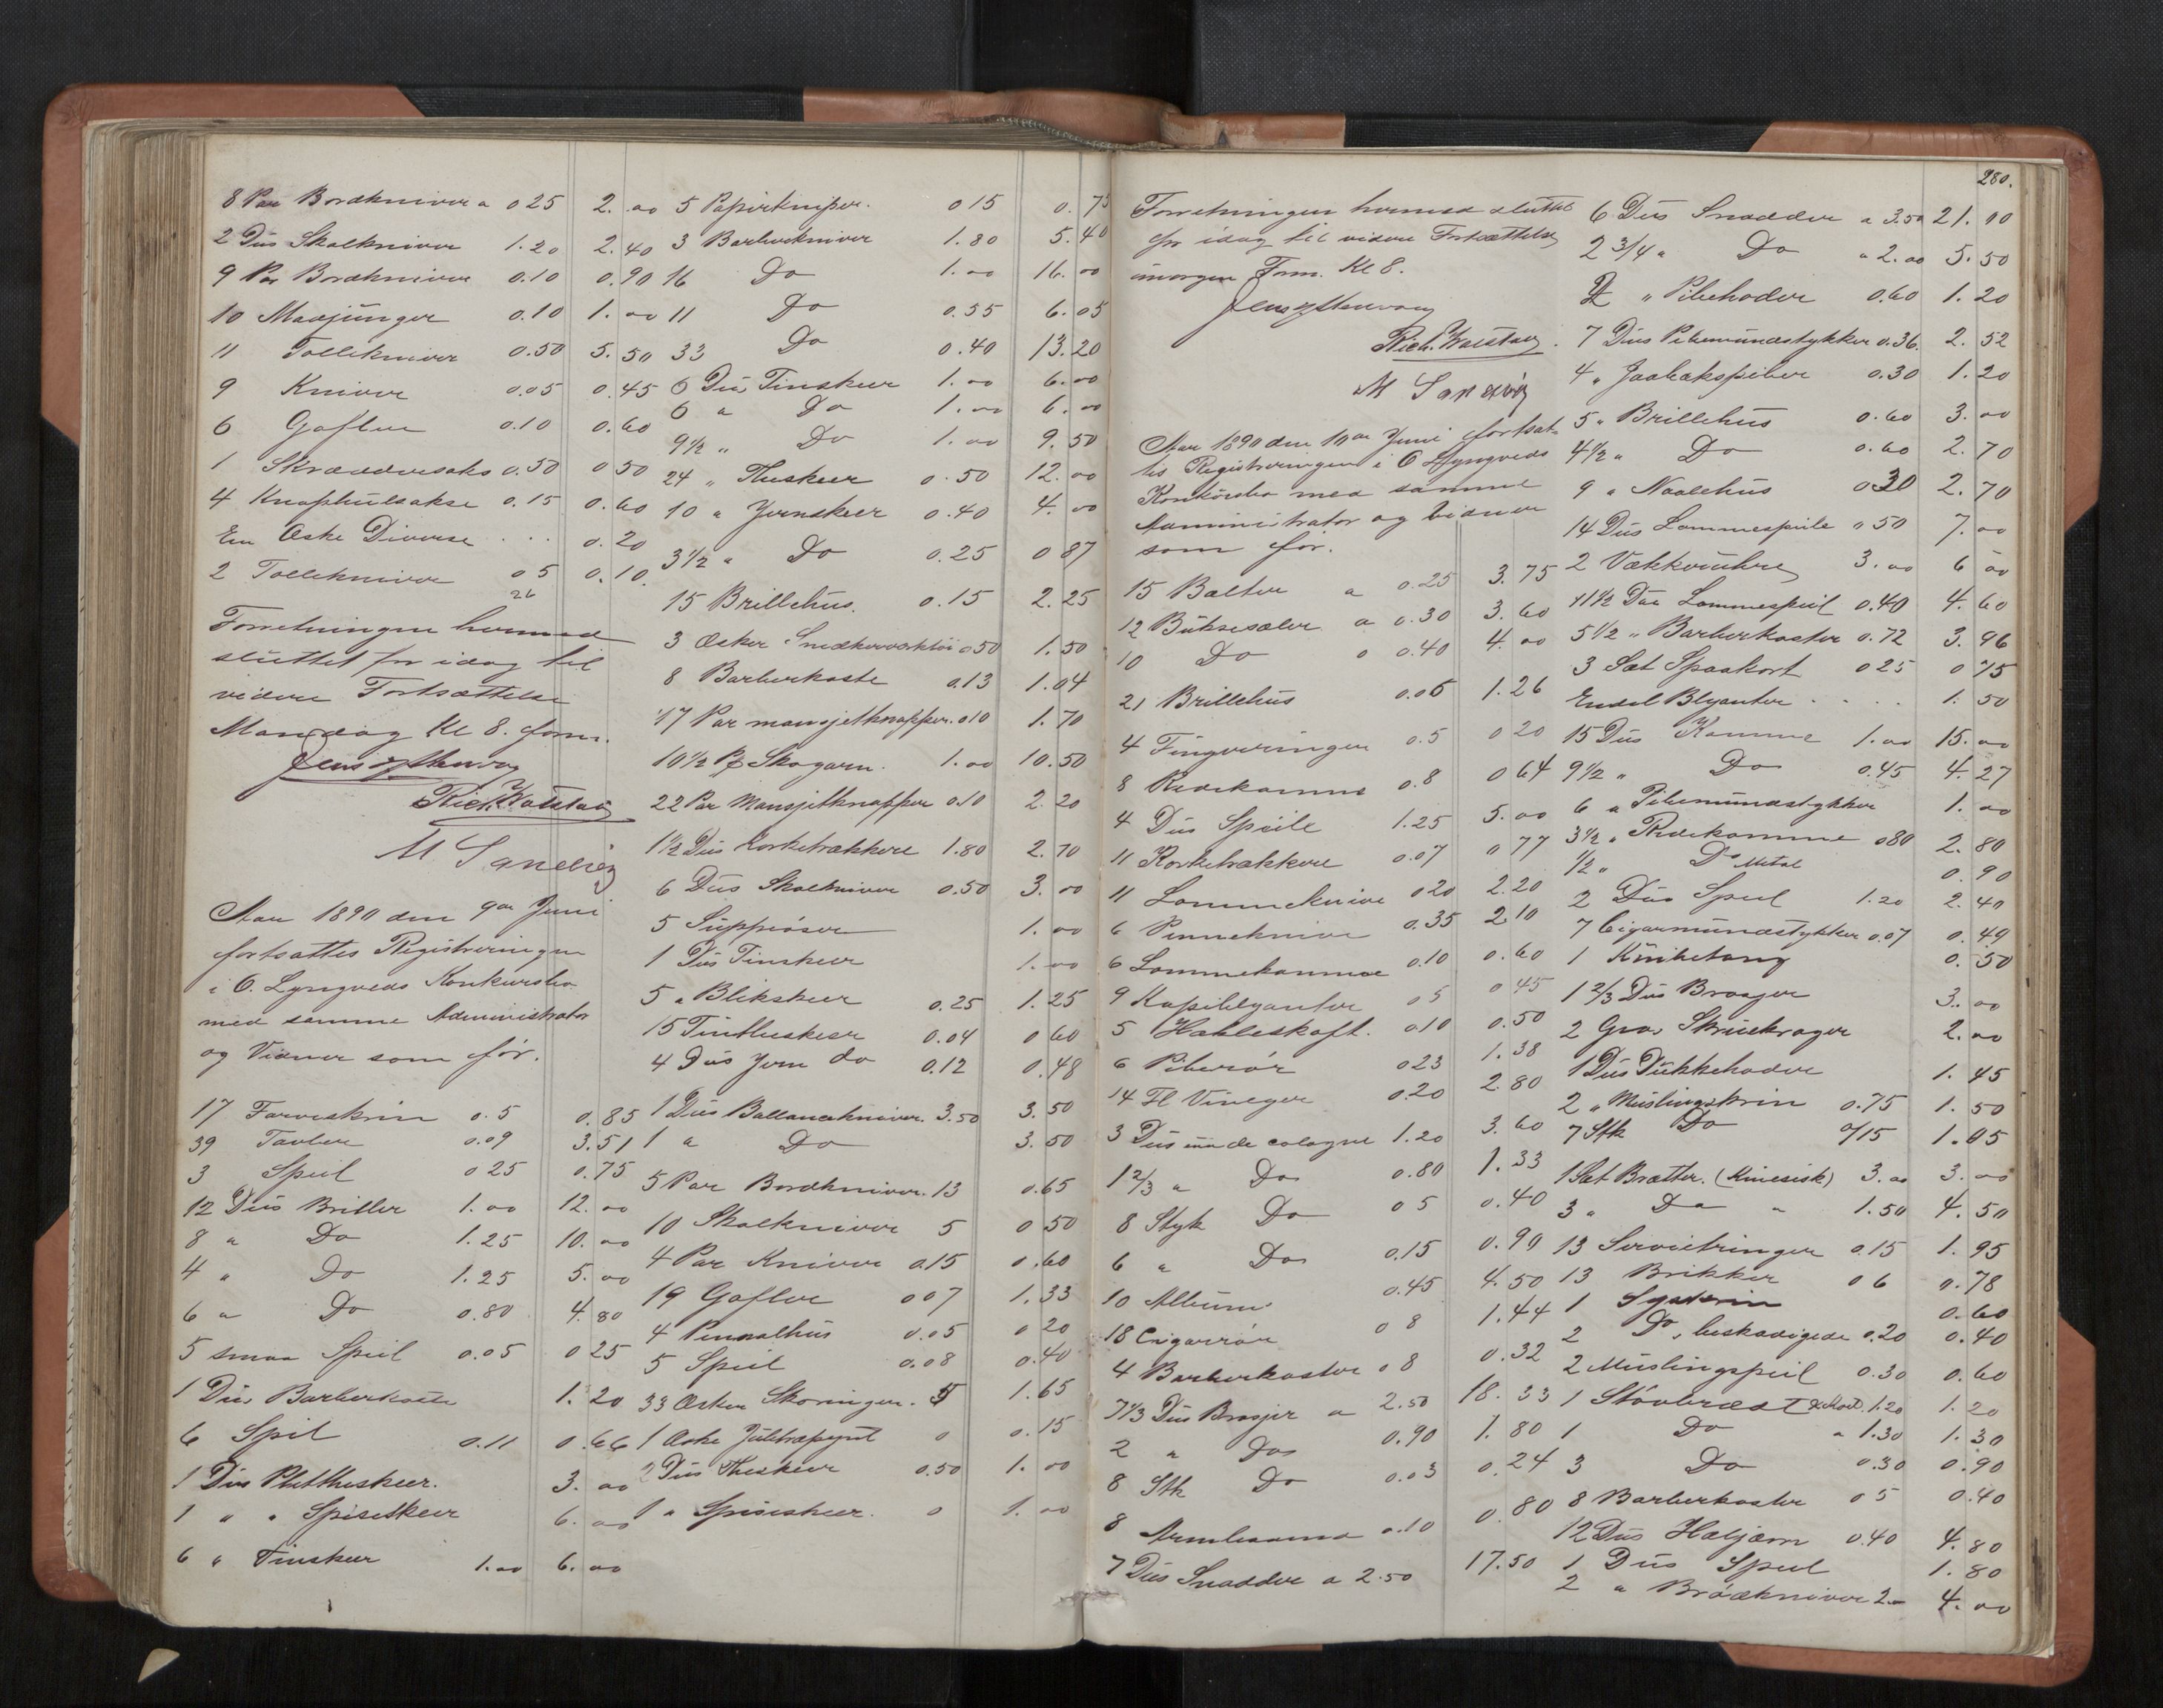 8 Par Bordkniver a 0 25 2. 00
2 Dus Skalkniver 1.20 2.40
9 Par Bordkniver 0.10 0.90
10 Maujunger 0.10 1.00
11 Tolleknive 0.50 5.50
9 Knive 0.05 0.45
6 Gafler 0.10 0.60
1 Skræddersaks 0.50 0 50
4 Knaphulsakse 0.15 0.60
En Æske Diverse . . . 0.20
2 Tolleknive 0 5 0.10.
26
Forretningen hermed
sluttet for idag til
videre Fortsættelse
Mandag Kl 8. form.
M Sandvig
Aar 1890 den 9de Juni
fortsattes Registreringen
i O. Lyngveds Konkursbo
med samme Administrator
og Vidner som før.
17 Farveskrin 0.5 0.85
39 Tavler 0.09 3.51
3 Speil 0 25 0.75
12 Dus Briller 1.00 12.00
8 " Do 1.25 10.00
4 " Do 1.25 5.00
6 " Do 0.80 4.80
5 smaa Speil 0.05 0 25
1 Dus Barberkoste 1.20
6 Spil 0.11 0.66
1 Dus Pletttheskeer. 3.00
1 " " Spiseskeer 6.00
6 " Tinskeer 1.00 6.00
5 Papirkniper. 0 15 0.75
3 Barberkniver 1.80 5.40
16 Do 1.00 16.00
11 Do 0.55 6.05
33 Do 0.40 13.20
6 Dus Tinskeer 1.00 6.00
6 " Do 1.00 6.00
9 1/2 " Do 1.00 9.50
24 " Theskeer 0.50 12.00
10 " Jernskeer 0.40 4.00
3 1/2 " Do 0.25 0 87
15 Brillehus. 0.15 2.25
3 Æsker Snedkerværktøi 0 50 1.50
8 Barberkoste 0.13 1.04
17 Par mansjetknapper. 0 10 1.70
10 1/2 ℔ Skogarn. 1.00 10.50
22 Par Mansjetknapper 0.10 2.20
1 1/2 Dus Korketrækkere 1.80 2.70
6 Dus Skalkniver 0.50 3.00
5 Suppeøser 1.00
1 Dus Tinskeer 1.00
5 " Blikskeer 0.25 1.25
15 Tintheskeer 0.04 0 60
4 Dus Jern do 0.12 0.48
1 Dus Ballanceknive. 3.50 3.50
1 " Do 3.50
5 Par Bordkniver. 13 0.65
10 Skalkniver 5 0 50
4 Par Kniver 0.15 0.60
19 Gafler 0 07 1.33
4 Pennalhus 0.05 0 20
5 Speil 0.08 0.40
33 Æsker Skoringer. 5 1.65
1 Æske Juletræpynt 0 0.15
2 Dus Theskeer 0.50 1.00
1 " Spiseskeer. 0 1.00
280.
Forretningen hermed sluttet
for idag til videre Fortsættelse
imorgen Form. Kl 8.
M Sandvig
Aar 1890 den 10de Juni fortsat-
tes Registreringen i O Lyngveds
Konkursbo med samme
Administrator og Vidner
som før.
15 Belter a 0.25 3.75
12 Buksesæler a 0.30 3.60
10 Do 0 0.40 4.00
21 Brillehus 0.06 1.26
4 Fingerringer 0.5 0 20
8 Redekamme 0.8 0 64
4 Dus Speile 1.25 5.00
11 Korketrækkere 0.07 0 77
11 Lommeknive 0 20 2.20
6 Penneknive 0.35 2.10
6 Lommekamme 0.10 0.60
9 Kopiblyanter 0 5 0 45
5 Hækleskaft. 0.10 0.50
6 Piberør 0 23 1.38
14 Fl Vineger 0.20 2.80
3 Dus eau de cologne 1.20 3.60
1 2/3 " Do 0.80 1.33
8 Styk Do 0 5 0.40
6 " Do 0.15 0.90
10 Album 0.45 4.50
18 Cigarrør 0 8 1.44
4 Barberkoster 0 8 0.32
7 1/3 Dus Brosjer a 2.50 18.33
2 " Do 0.90 1.80
8 Stk Do 0.03 0.24
8 Armbaand 0.10 0.80
7 Dus Snadder a 2.50 17.50
6 Dus Snadder a 3.50 21.00
2 3/4 " Do " 2.00 5.50
2 " Pibehoder 0.60 1.20
7 Dus Pibemundstykker 0.36. 2.52
4 " Jaabakspiber 0.30 1.20
5 " Brillehus 0.60 3.00
4 1/2 " Do 0.60 2.70
9 " Naalehus 0 30 2.70
14 Dus Lommespeile 0 50 7.00
2 Vækkeuhre 3.00 6 00
11 1/2 Dus Lommespeil 0.40 4.60
5 1/2 " Barberkoster 0.72 3.96
3 Sæt Spaakort 0 25 0 75
Endel Blyanter . . . . 1.50
15 Dus Kamme 1.00 15.00
9 1/2 " Do 0.45 4.27
6 " Pibemundstykker 1.00
3 1/2 " Redekamme 0 80 2.80
1/2 " Do Metal 0.90
2 Dus Speil 1.20 2.40
7 Cigarmundstykker 0.07 0.49
1 Knibetang 0.50
1 2/3 Dus Brosjer 3.00
2 Gros Skruekroger 2.00
1 Dus Dukkehoder 1.45
2 " Muslingskrin 0.75 1.50
7 Stk Do 0/15 1.05
1 Sæt Bretter. (Kinesisk) 3.00 3.00
3 " Do " 1.50 4.50
13 Servietringer 0.15 1.95
13 Brikker 0 6 0.78
1 Syskrin 0.60
2 Do, beskadigede 0.20 0.40
2 Muslingspeil 0.30 0.60
1 Støvbræt 1.20 1.20
1 Do " 1.30 1.30
3 Do 0.30 0.90
8 Barberkoster 0 5 0.40
12 Dus Haljern 0.40 4.80
1 Dus Speil 1.80
2 " Brødkniver 2.— 4.00